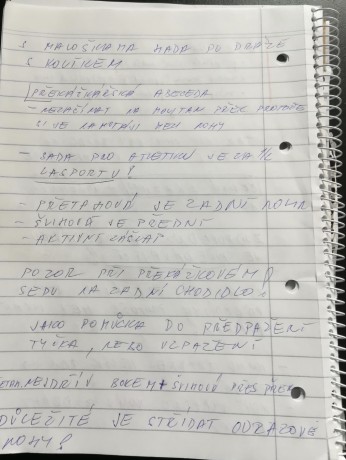 S MALOŠKAMA NADA PO DRÁZE
S KOLÍKEM
PŘEKÁŽKÁŘSKÁ ABECEDA
- NEDÁVAT NA PŘES PROTOŽE
SI JE MEZI NOHY
- SADA PRO ATLETIKU JE ZA 1/2
LASPORTU!
- PŘETAHOVÁ JE ZADNÍ NOHA
- ŠVIHOVÁ JE PŘEDNÍ
- AKTIVNÍ DÁŠLAP
POZOR PŘI PŘEKÁŽKOVÉM
SEDU NA ZADNÍ CHODIDLO!
JAKO POMŮCKA DO PŘEDPAŽENÍ
TYČKA, NEBO VZPAŽENÍ
NEJDŘÍV BOKEM + ŠVIHOVÁ PŘES PŘEK
DŮLEŽITÉ JE STŘÍDAT ODRAZOVÉ
NOHY!